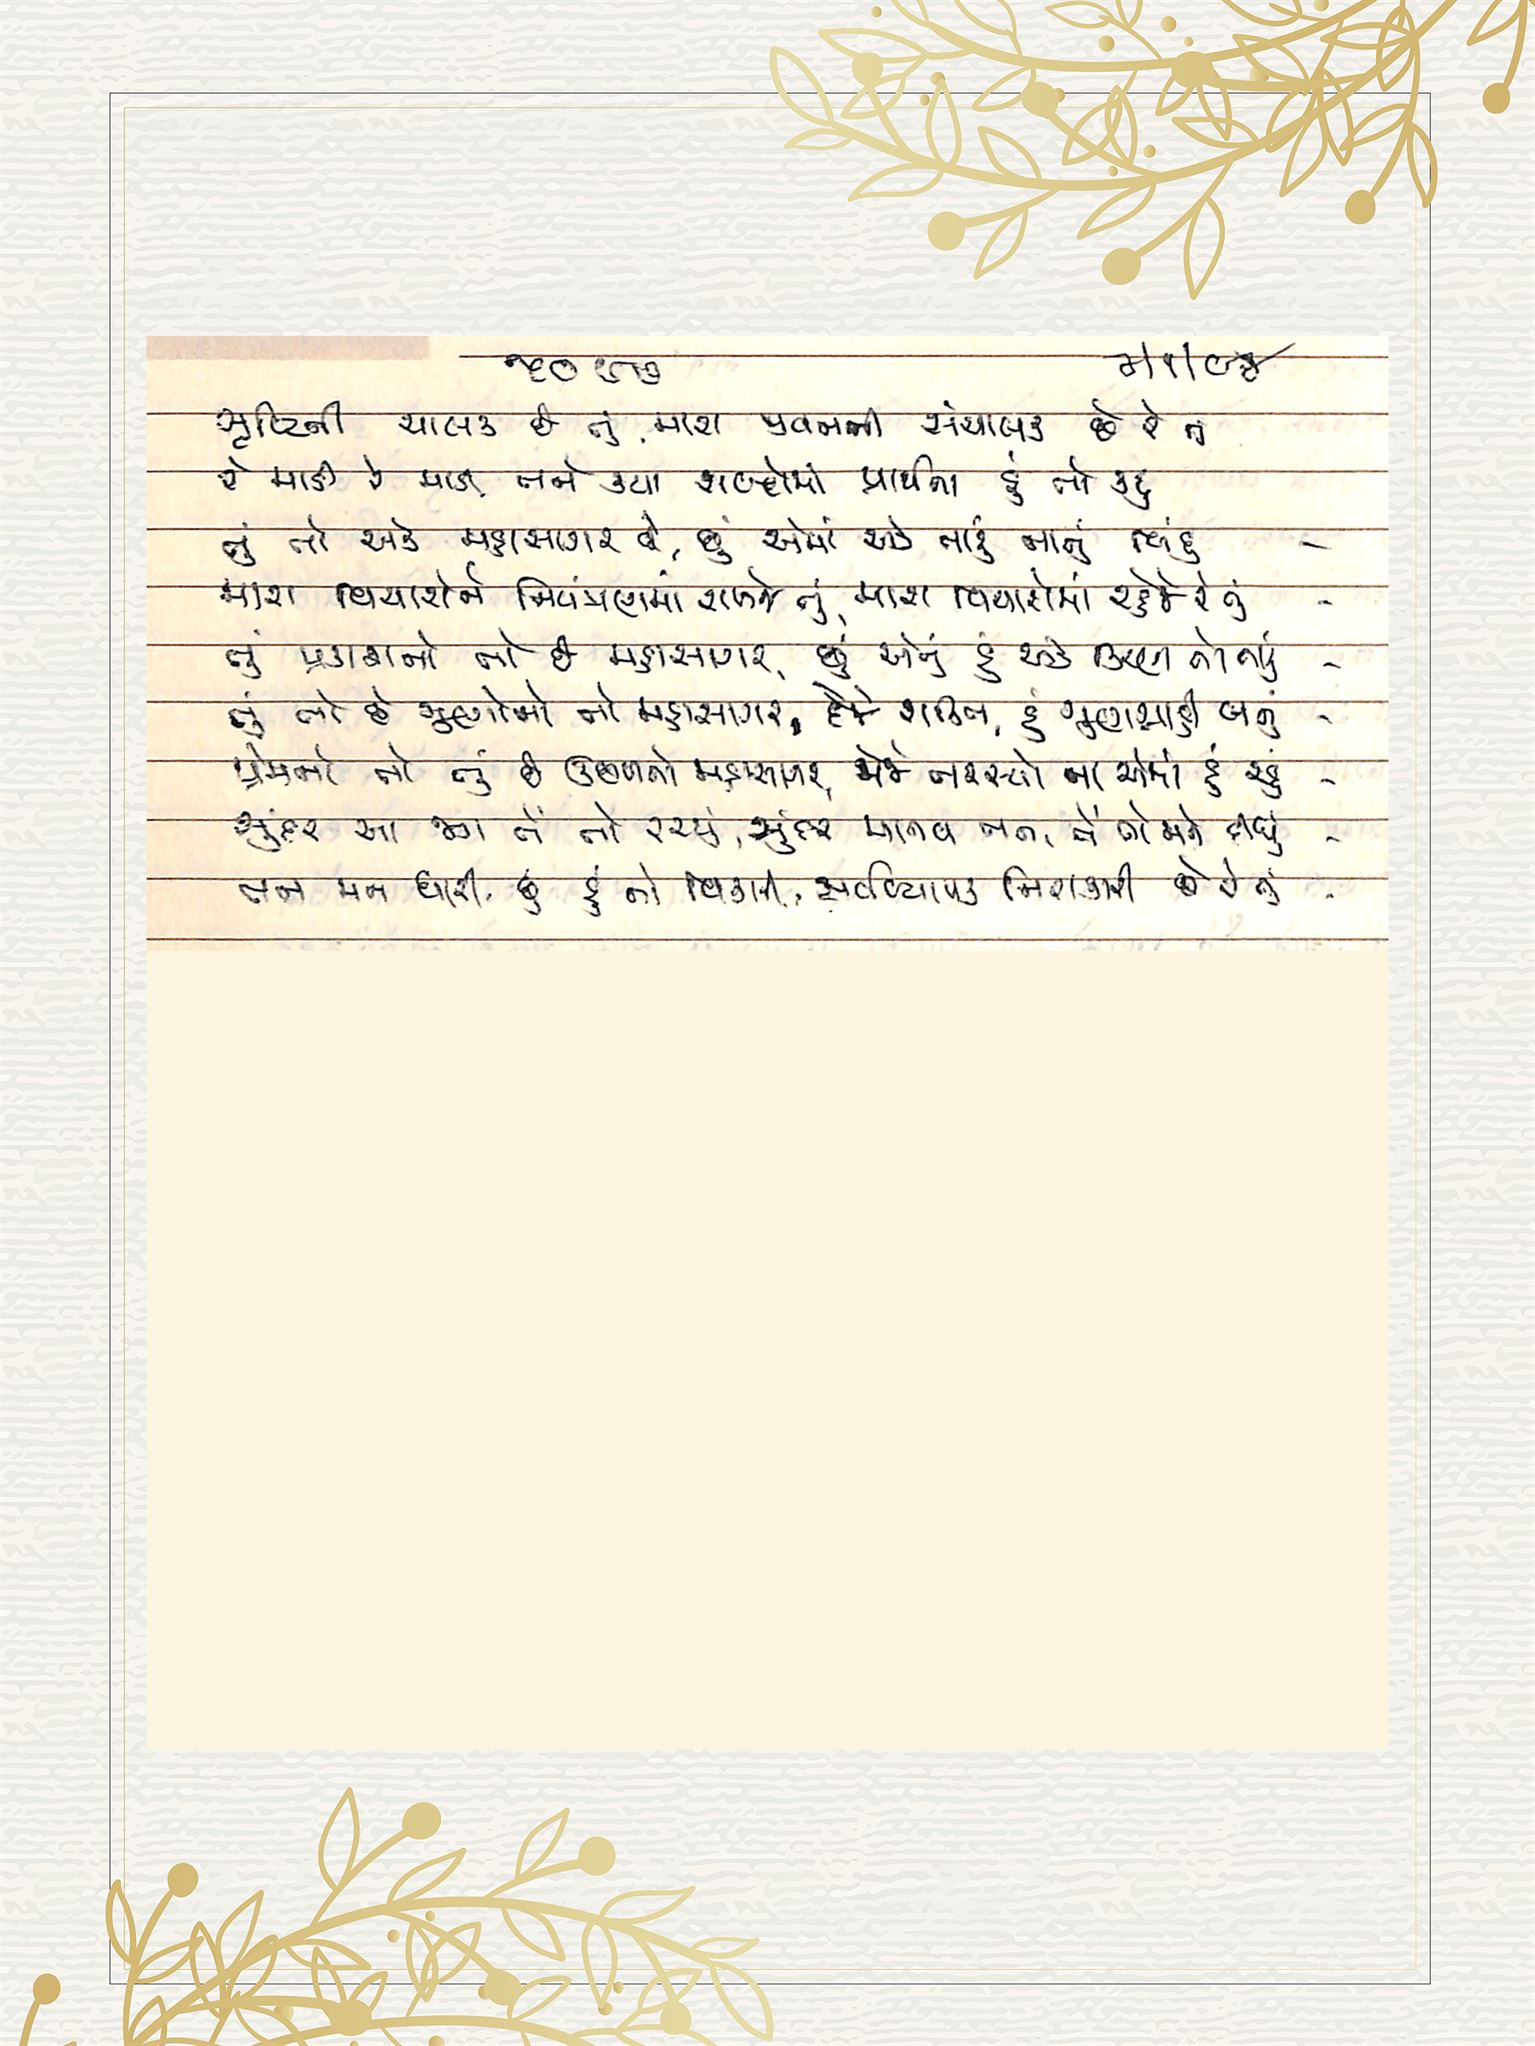 સૃષ્ટિની ચાલક છે તું, મારા જીવનની સંચાલક છે રે તું
રે માડી રે માડી, તને કયા શબ્દોમાં પ્રાર્થના હું તો કરું
તું તો એક મહાસાગર છે, છું એમાં એક નાનું બિંદુ -
મારા વિચારોને નિયંત્રણમાં રાખજે તું, મારા વિચારોમાં રહેજે રે તું -
તું પ્રકાશનો તો છે મહાસાગર, છું એનું હું એક કિરણ તો
તું તો છે ગુણોનો તો મહાસાગર, દેજે શક્તિ, હું ગુણગ્રાહી બનું -
પ્રેમનો તો તું છે ઉછળતો મહાસાગર, જોજે તરસ્યો ના એમાં હું રહું -
સુંદર આ જગ તેં તો રચ્યું, સુંદર માનવ તન, તેં તો મને દીધું -
તન મન ધારી છું હું તો વિકારી, સર્વવ્યાપક નિરાકારી છે રે તું -